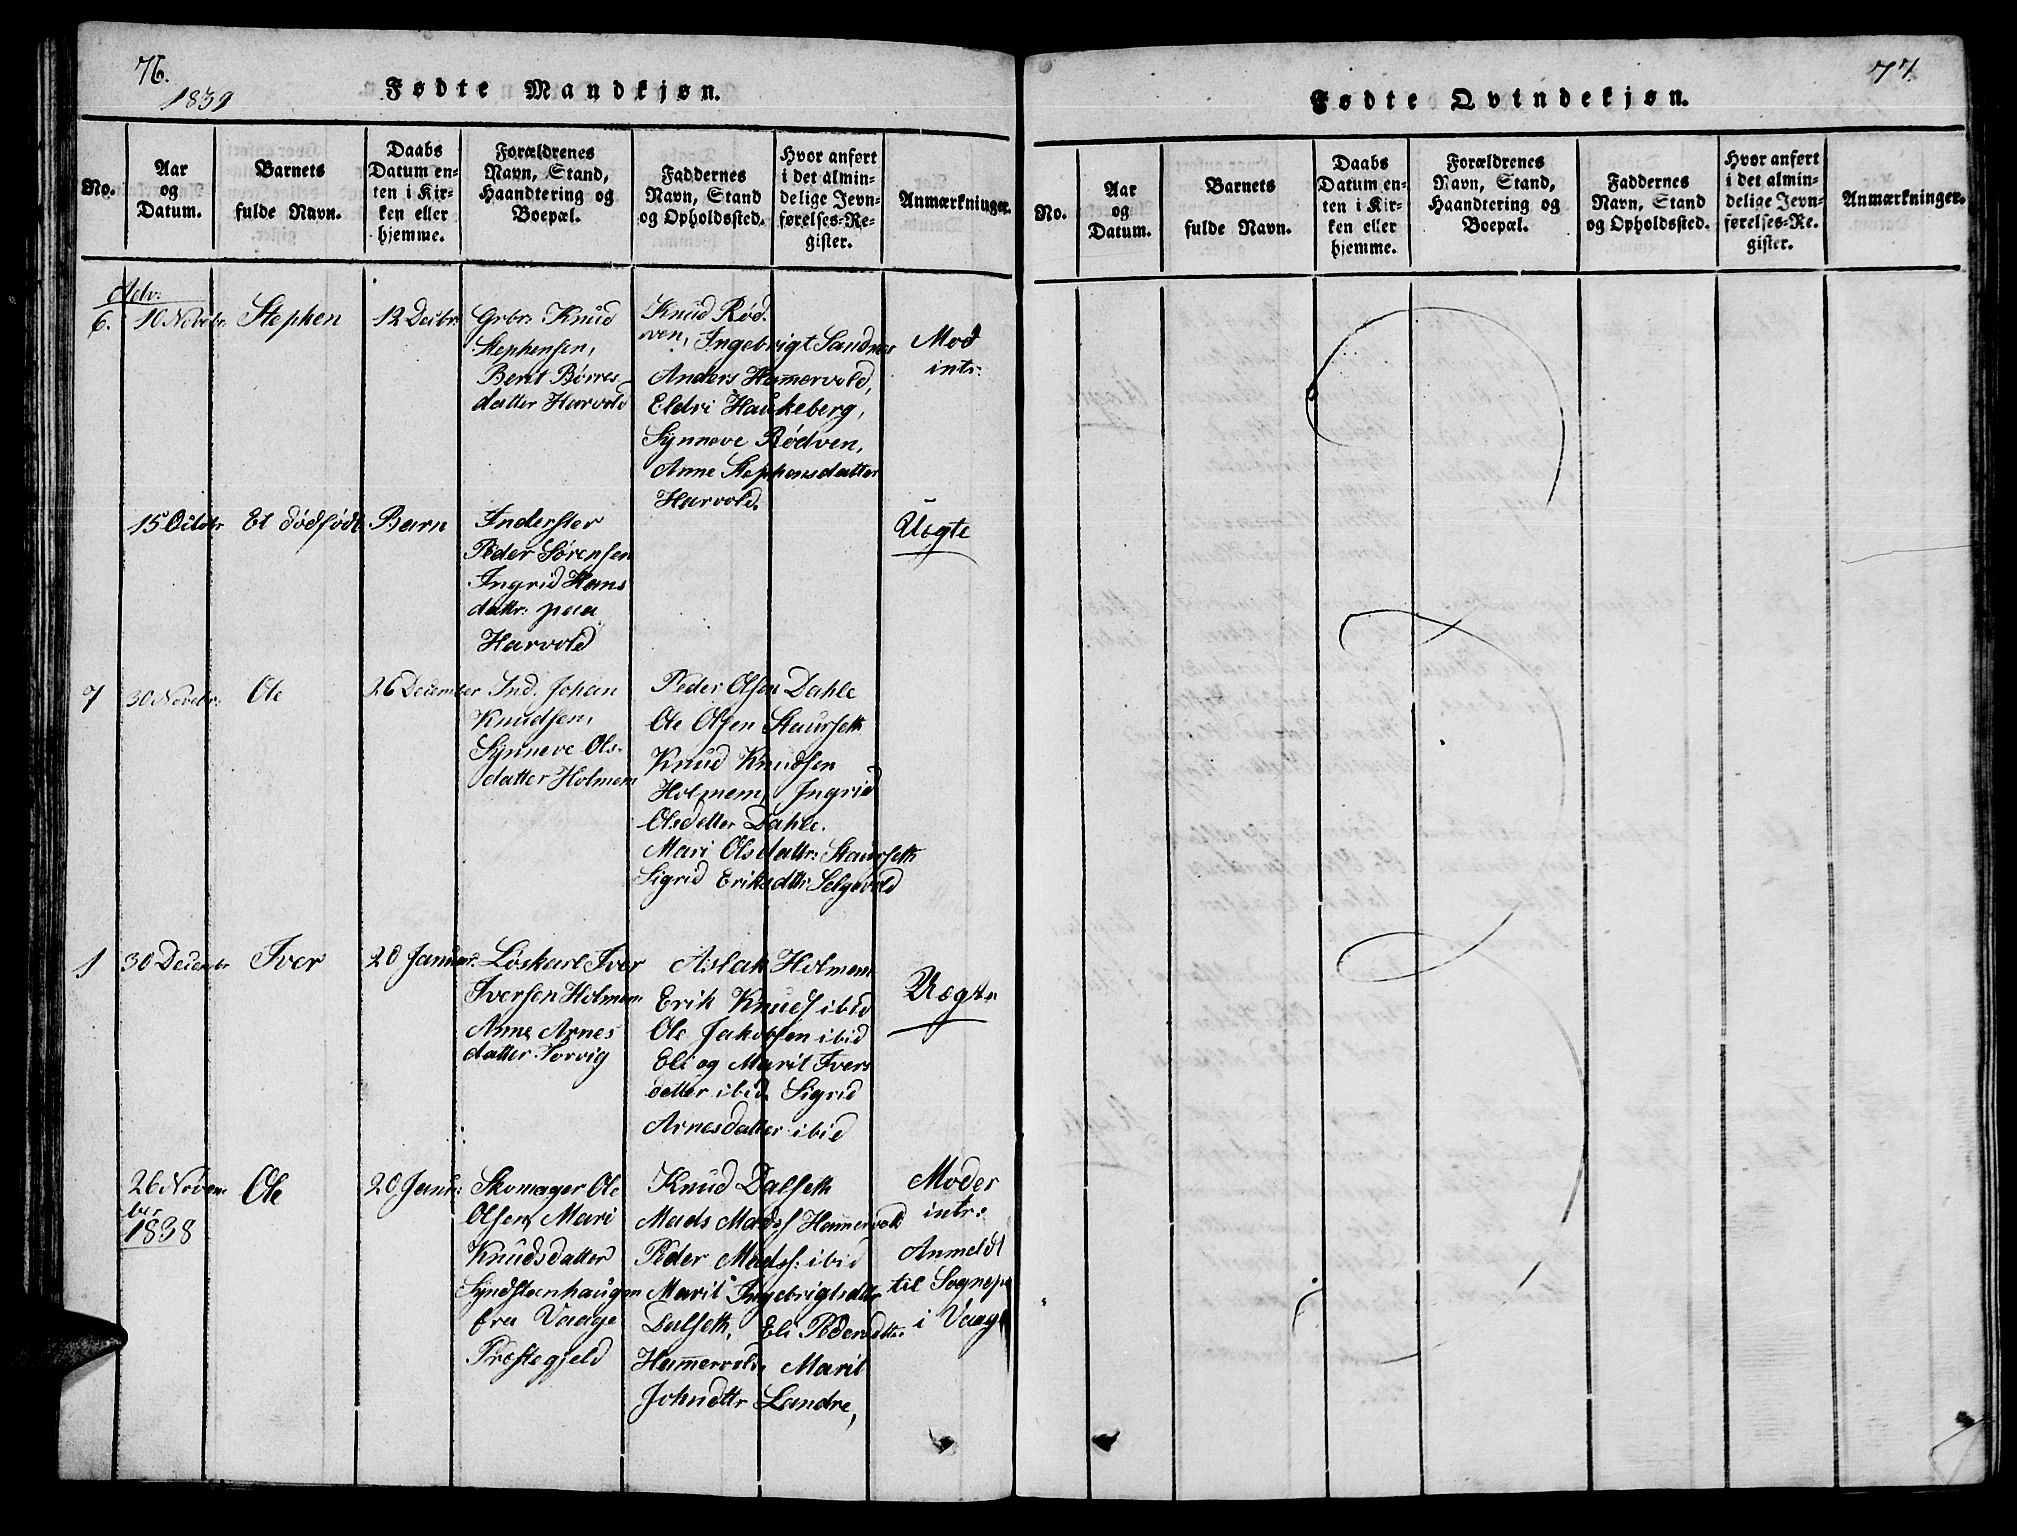 76.
1839
Fødte Mandkjøn.
No.
Aar
og
Datum.
Barnets
fulde Navn.
Daabs
Datum en-
ten i Kir-
ken eller
hjemme.
Forældrenes
Navn, Stand,
Haandtering og
Boepæl.
Faddernes
Navn, Stand
og Opholdssted.
Hvor anført
i det almin-
delige Jevn-
førelses-Re-
gister.
Anmærkninger.
6.
10 Novebr:
Stephen
12 Decbr:
Grbr: Knud
Stephensen,
Berit Børres
datter Harvold
Knud Rød.
ven, Ingebrigt Sandnes
Anders Hamervold,
Eldri Haukeberg,
Synneve Rødven,
Anne Stephensdatter
Harvold.
Mod
intr:
15 Octobr
Et dödfödt
Barn
Inderster
Peder Sörensen
Ingrid Hans
dattr: paa
Harvold
Uægte
7
30 Novebr:
Ole
26 December
Ind. Johan
Knudsen,
Synneve Ols-
datter Holmem
Peder Olsen Dahle
Ole Olsen Staurseth
Knud Knudsen
Holmem, Ingrid
Olsdatter Dahle.
Mari Olsdattr: Staurseth
Sigrid Eriksdttr: Selgevold
1
30 Decembr
Iver
20 Januar:
Løskarl Iver
Iversen Holmem
Anne Arnes
datter Torvig
Aslak Holmem
Erik Knuds ibid
Ole Jakobsen ibid
Eli og Marit Ivers
datter ibid. Sigrid
Arnesdatter ibid
Uægte
26 Novem
ber
1838
Ole
20 Janu:
Skomager Ole
Olsen, Mari
Knudsdatter
Syndsteenhaugen
fra Vaage
Præstegjeld
Knud Dalseth
Mads Madss Hamervold
Peder Mads: ibid
Marit Ingebrigtsdttr
Dalseth, Eli Pedersdttr
Hamervold, Marit
Johnsdttr Landre,
Moder
intr:
Anmeldt
til Sognepr
i Vaage
77.
Fødte Qvindekjøn.
No.
Aar
og
Datum.
Barnets
fulde Navn.
Daabs
Datum en-
ten i Kir-
ken eller
hjemme.
Forældrenes
Navn, Stand,
Haandtering og
Boepæl.
Faddernes
Navn, Stand
og Opholdssted.
Hvor anført
i det almin-
delige Jevn-
førelses-Re-
gister.
Anmærkninger.